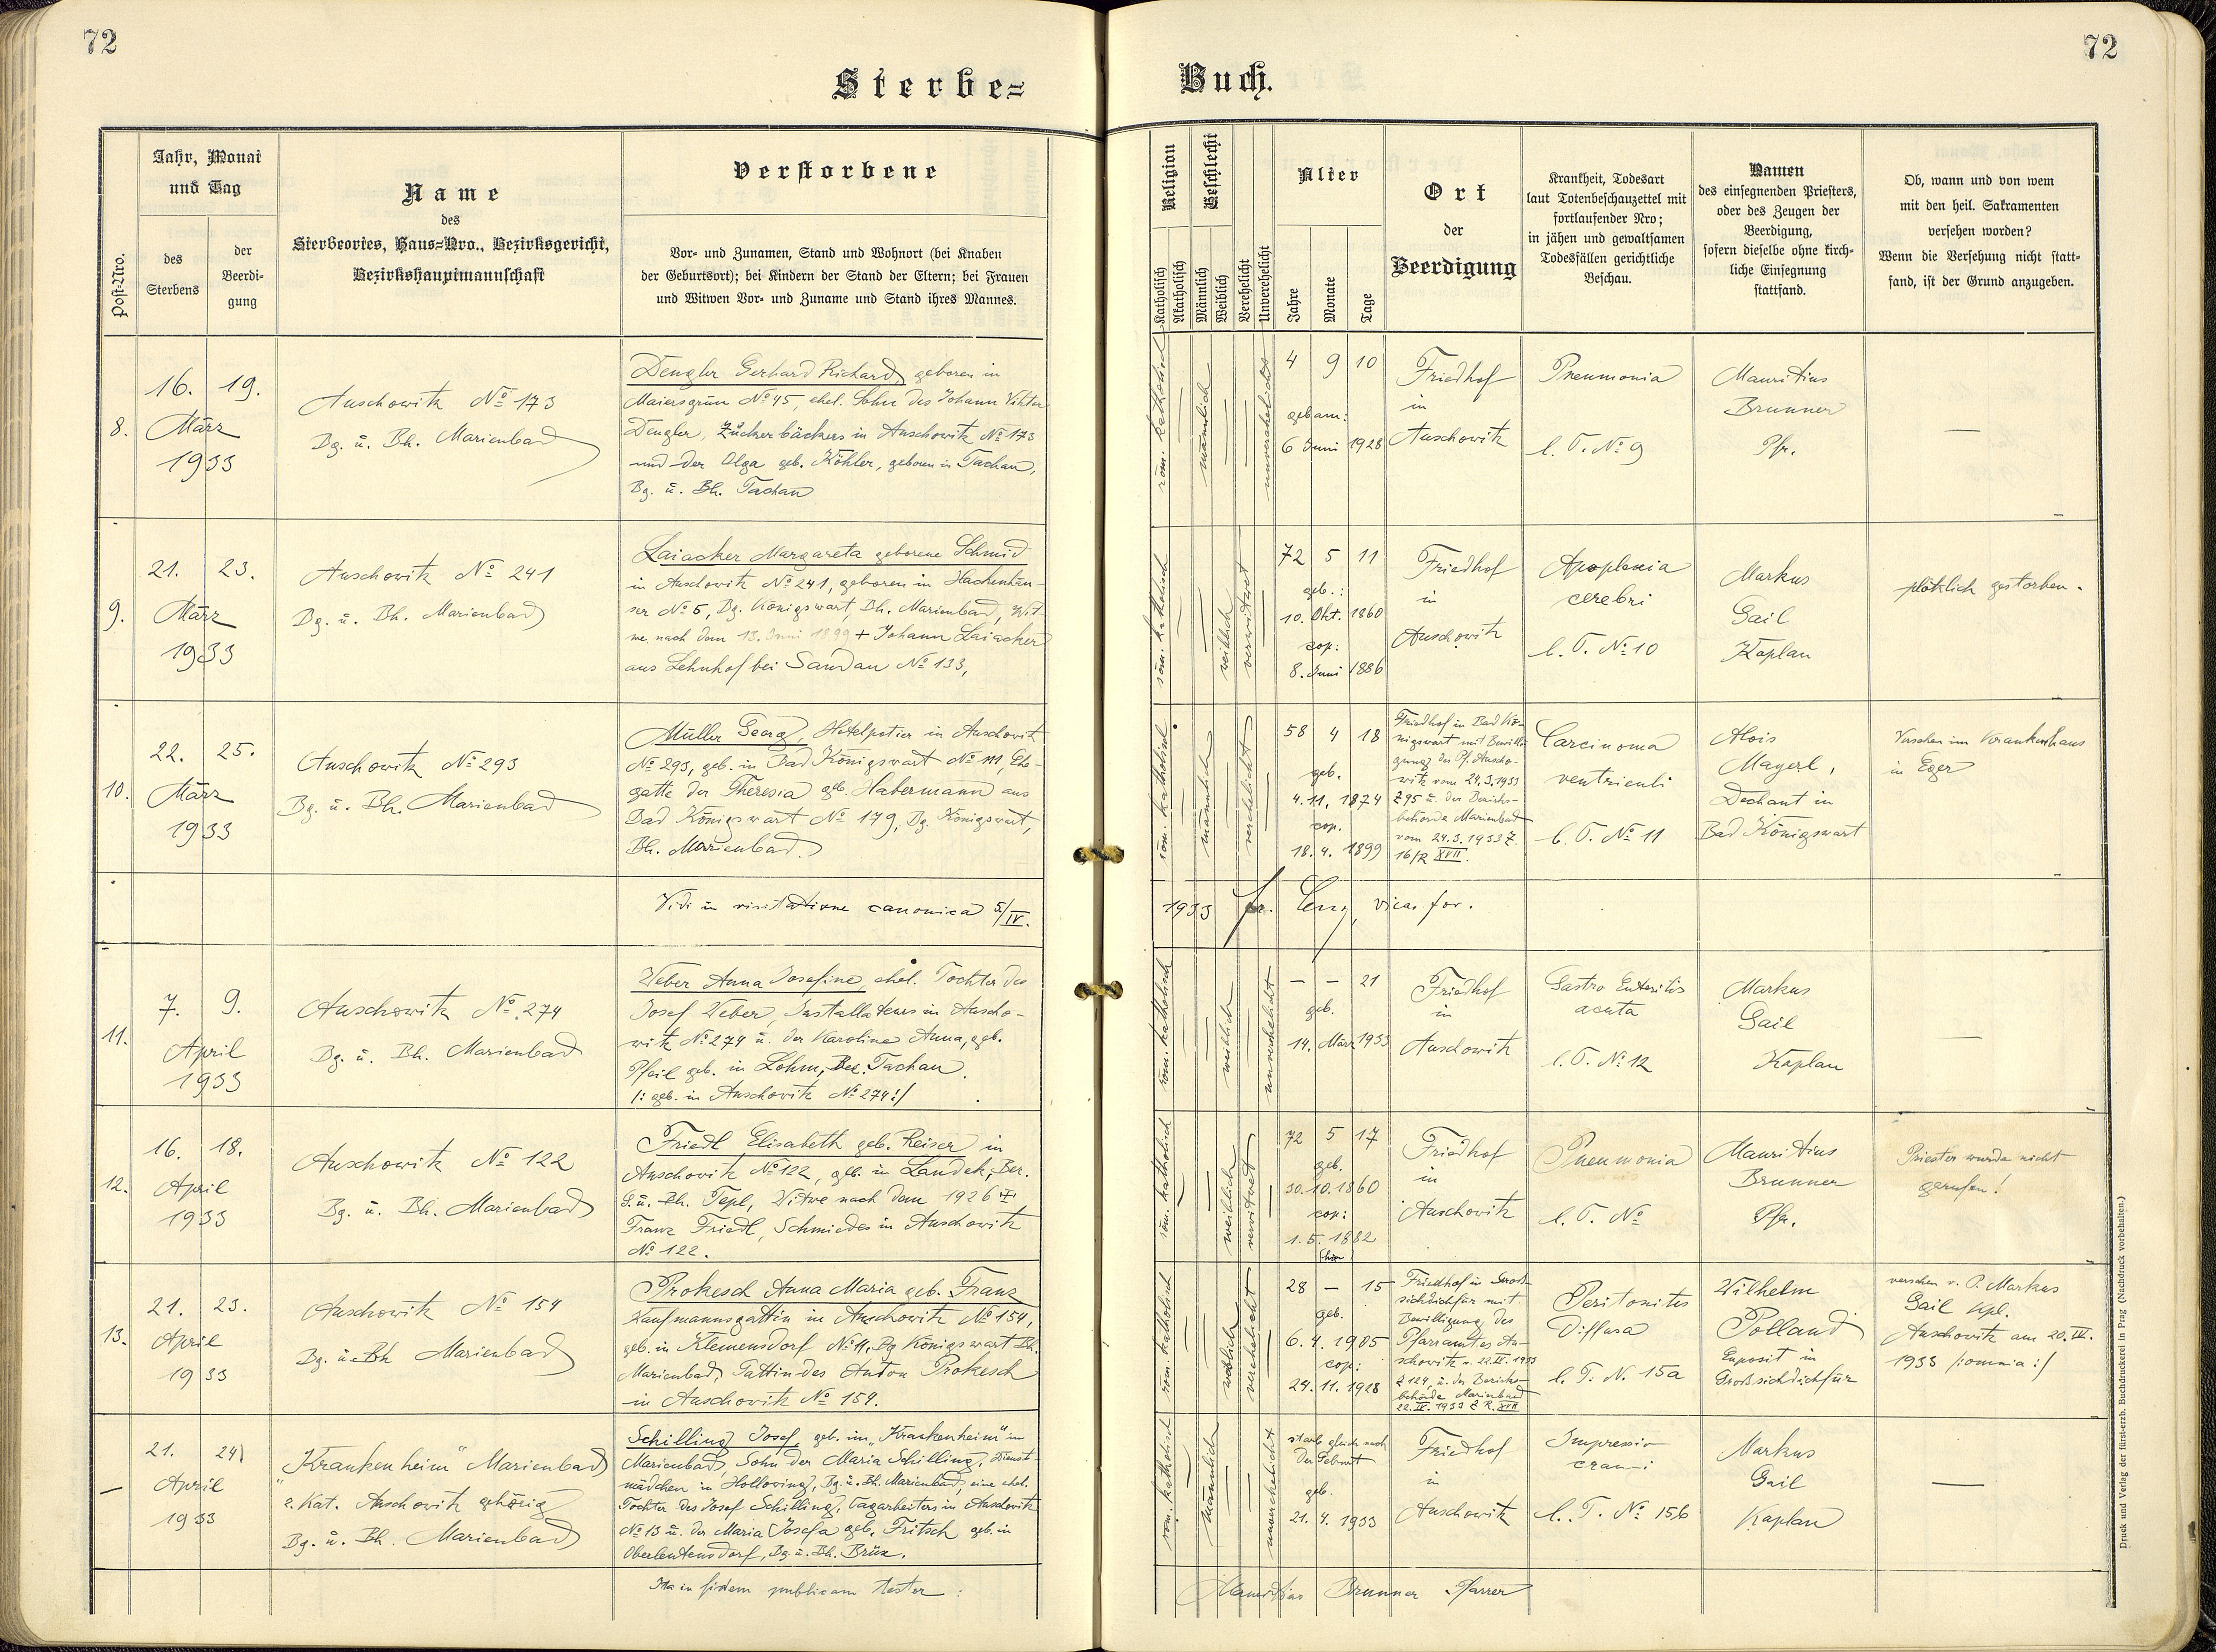 72
72
Sterbe=
Buch.
Post-Nro.
Jahr, Monat
und Tag
des
Sterbens
der
Beerdi-
gung
Name
des
Sterbeortes, Haus=Nro., Bezirksgericht,
Bezirkshauptmannschaft
Verstorbene
Vor= und Zunamen, Stand und Wohnort (bei Knaben
der Geburtsort); bei Kindern der Stand der Eltern; bei Frauen
und Witwen Vor= und Zuname und Stand ihres Mannes.
Religion
Katholisch
Akatholisch
Geschlecht
Männlich
Weiblich
Verehelicht
Unverehelicht
Alter
Jahre
Monate
Tage
Ort
der
Beerdigung
Krankheit, Todesart
laut Totenbeschauzettel mit
fortlaufender Nro;
in jähen und gewaltsamen
Todesfällen gerichtliche
Beschau.
Namen
des einsegnenden Priesters,
oder des Zeugen der
Beerdigung,
sofern dieselbe ohne kirch-
liche Einsegnung
stattfand.
Ob, wann und von wem
mit den heil. Sakramenten
versehen worden?
Wenn die Versehung nicht statt-
fand, ist der Grund anzugeben.
8.
16. 19.
März
1933
Auschowitz No 173
Bg. ü. Bh. Marienbad
Dengler Gerhard Richard, geboren in
Maiersgrün No 45, ehel. Sohn des Johann Viktor
Dengler, Zückerbäckers in Auschowitz No 173
und der Olga geb. Köhler, geboren in Tachau,
Bg. ü. Bh. Tachau
röm. katholisch
männlich
unverehelicht
4 9 10
geb am:
6 Juni 1928
Friedhof
in
Auschowitz
Pneumonia
l. T. No 9
Mauritius
Brunner
Pfr.
—
9.
21. 23.
März
1933
Auschowitz No 241
Bg. ü. Bh. Marienbad
Laiacker Margareta geborene Schmid
in Auschowitz No 241, geboren in Hackenhäu-
ser No 5, Bg. Königswart, Bh. Marienbad, Wit-
we nach dem 13. Juni 1899 + Johann Laiacker
aus Lehnhof bei Sandau No 133,
röm. katholisch
weiblich
verwitwet
72 5 11
geb.:
10. Okt. 1860
cop:
8. Juni 1886
Friedhof
in
Auschowitz
Apoplexia
cerebri
l. T. No 10
Markus
Gail
Kaplan
plötzlich gestorben.
10.
22. 25.
März
1933
Auschowitz No 293
Bg. ü. Bh. Marienbad
Müller Georg, Hotelpotier in Auschowitz
No 293, geb. in Bad Königswart No 111, Ehe-
gatte der Theresia geb. Habermann aus
Bad Königswart No 179, Bg. Königswart,
Bh. Marienbad.
röm. katholisch
männlich
verehelicht
58 4 18
geb.
4. 11. 1874
cop.
18. 4. 1899
Friedhof in Bad Kö-
nigswart mit Bewilli-
gung des Pf. Auscho-
witz vom 24.3.1933
Z 95 ü. der Bezirks-
behörde Marienbad
vom 24.3.1933 Z.
16/R XVII.
Carcinoma
ventriculi
l. T. No 11
Alois
Mayerl,
Dechant in
Bad Königswart
Versehen im Krankenhaus
in Eger
Vidi in visitatione canonica 5/IV.
1933 vica. for.
11.
7. 9.
April
1933
Auschowitz No 274
Bg. ü. Bh. Marienbad
Weber Anna Josefine, ehel. Tochter des
Josef Weber, Installateurs in Auscho-
witz No 274 ü. der Karoline Anna, geb.
Pfeil geb. in Lohm, Bez. Tachau.
/: geb. in Auschowitz No 274:/
röm. katholisch
weiblich
unverehelicht
— — 21
geb.
14. März 1933
Friedhof
in
Auschowitz
Gastro Enteritis
acuta
l. T. No 12
Markus
Gail
Kaplan
—
12.
16. 18.
April
1933
Auschowitz No 122
Bg. ü. Bh. Marienbad
Friedl Elisabeth geb. Reiser in
Auschowitz No 122, geb. in Landek, Ber.
G. ü. Bh. Tepl, Witwe nach dem 1926 +
Franz Friedl, Schmiedes in Auschowitz
No 122.
röm. katholisch
weiblich
verwitwet
72 5 17
geb.
30.10.1860
cop:
1. 5. 1882
Friedhof
in
Auschowitz
Pneumonia
l. T. No
Mauritius
Brunner
Pfr.
Priester wurde nicht
gerufen!
13.
21. 23.
April
1933
Auschowitz No 154
Bg. ü. Bh Marienbad
Prokesch Anna Maria geb. Franz
Kaufmannsgattin in Auschowitz No 154,
geb. in Klemensdorf No 11, Bg Königswart Bh.
Marienbad, Gattin des Anton Prokesch
in Auschowitz No 154.
röm. katholisch
weiblich
verehelicht
28 — 15
geb.
6. 4. 1905
cop:
24. 11. 1928
Friedhof in Groß-
sichdichfür mit
Bewilligung des
Pfarramtes Au-
schowitz v. 22.IV. 1933
Z 124, ü. der Bezirks-
behörde Marienbad
22. IV. 1933 Z R. XVII
Peritonitis
diffusa
l. T. N. 15a
Wilhelm
Polland
Exposit in
Großsichdichfür
versehen v. P. Markus
Gail Kpl.
Auschowitz am 20. IV.
1933 /:omnia:/
—
21. 24
April
1933
"Krankenheim" Marienbad
z. Kat. Auschowitz gehörig
Bg. ü. Bh. Marienbad
Schilling Josef, geb. im „Krankenheim" in
Marienbad, Sohn der Maria Schilling, Dienst-
mädchen in Hollowing, Bg. ü. Bh. Marienbad, eine ehel.
Tochter des Josef Schilling, Tagarbeiters in Auschowitz
No 13 ü. der Maria Josefa geb. Fritsch geb. in
Oberleutensdorf, Bg. ü. Bh. Brüx.
röm. katholisch
männlich
unverehelicht
starb gleich nach
der Geburt
geb.
21. 4. 1933
Friedhof
in
Auschowitz
Impressio
cranii
l. T. No 15b
Markus
Gail
Kaplan
—
Ita in fidem publicam testor:
Mauritius Brunner Pfarrer
Druck und Verlag der fürst-erzb. Buchdruckerei in Prag (Nachdruck vorbehalten.)